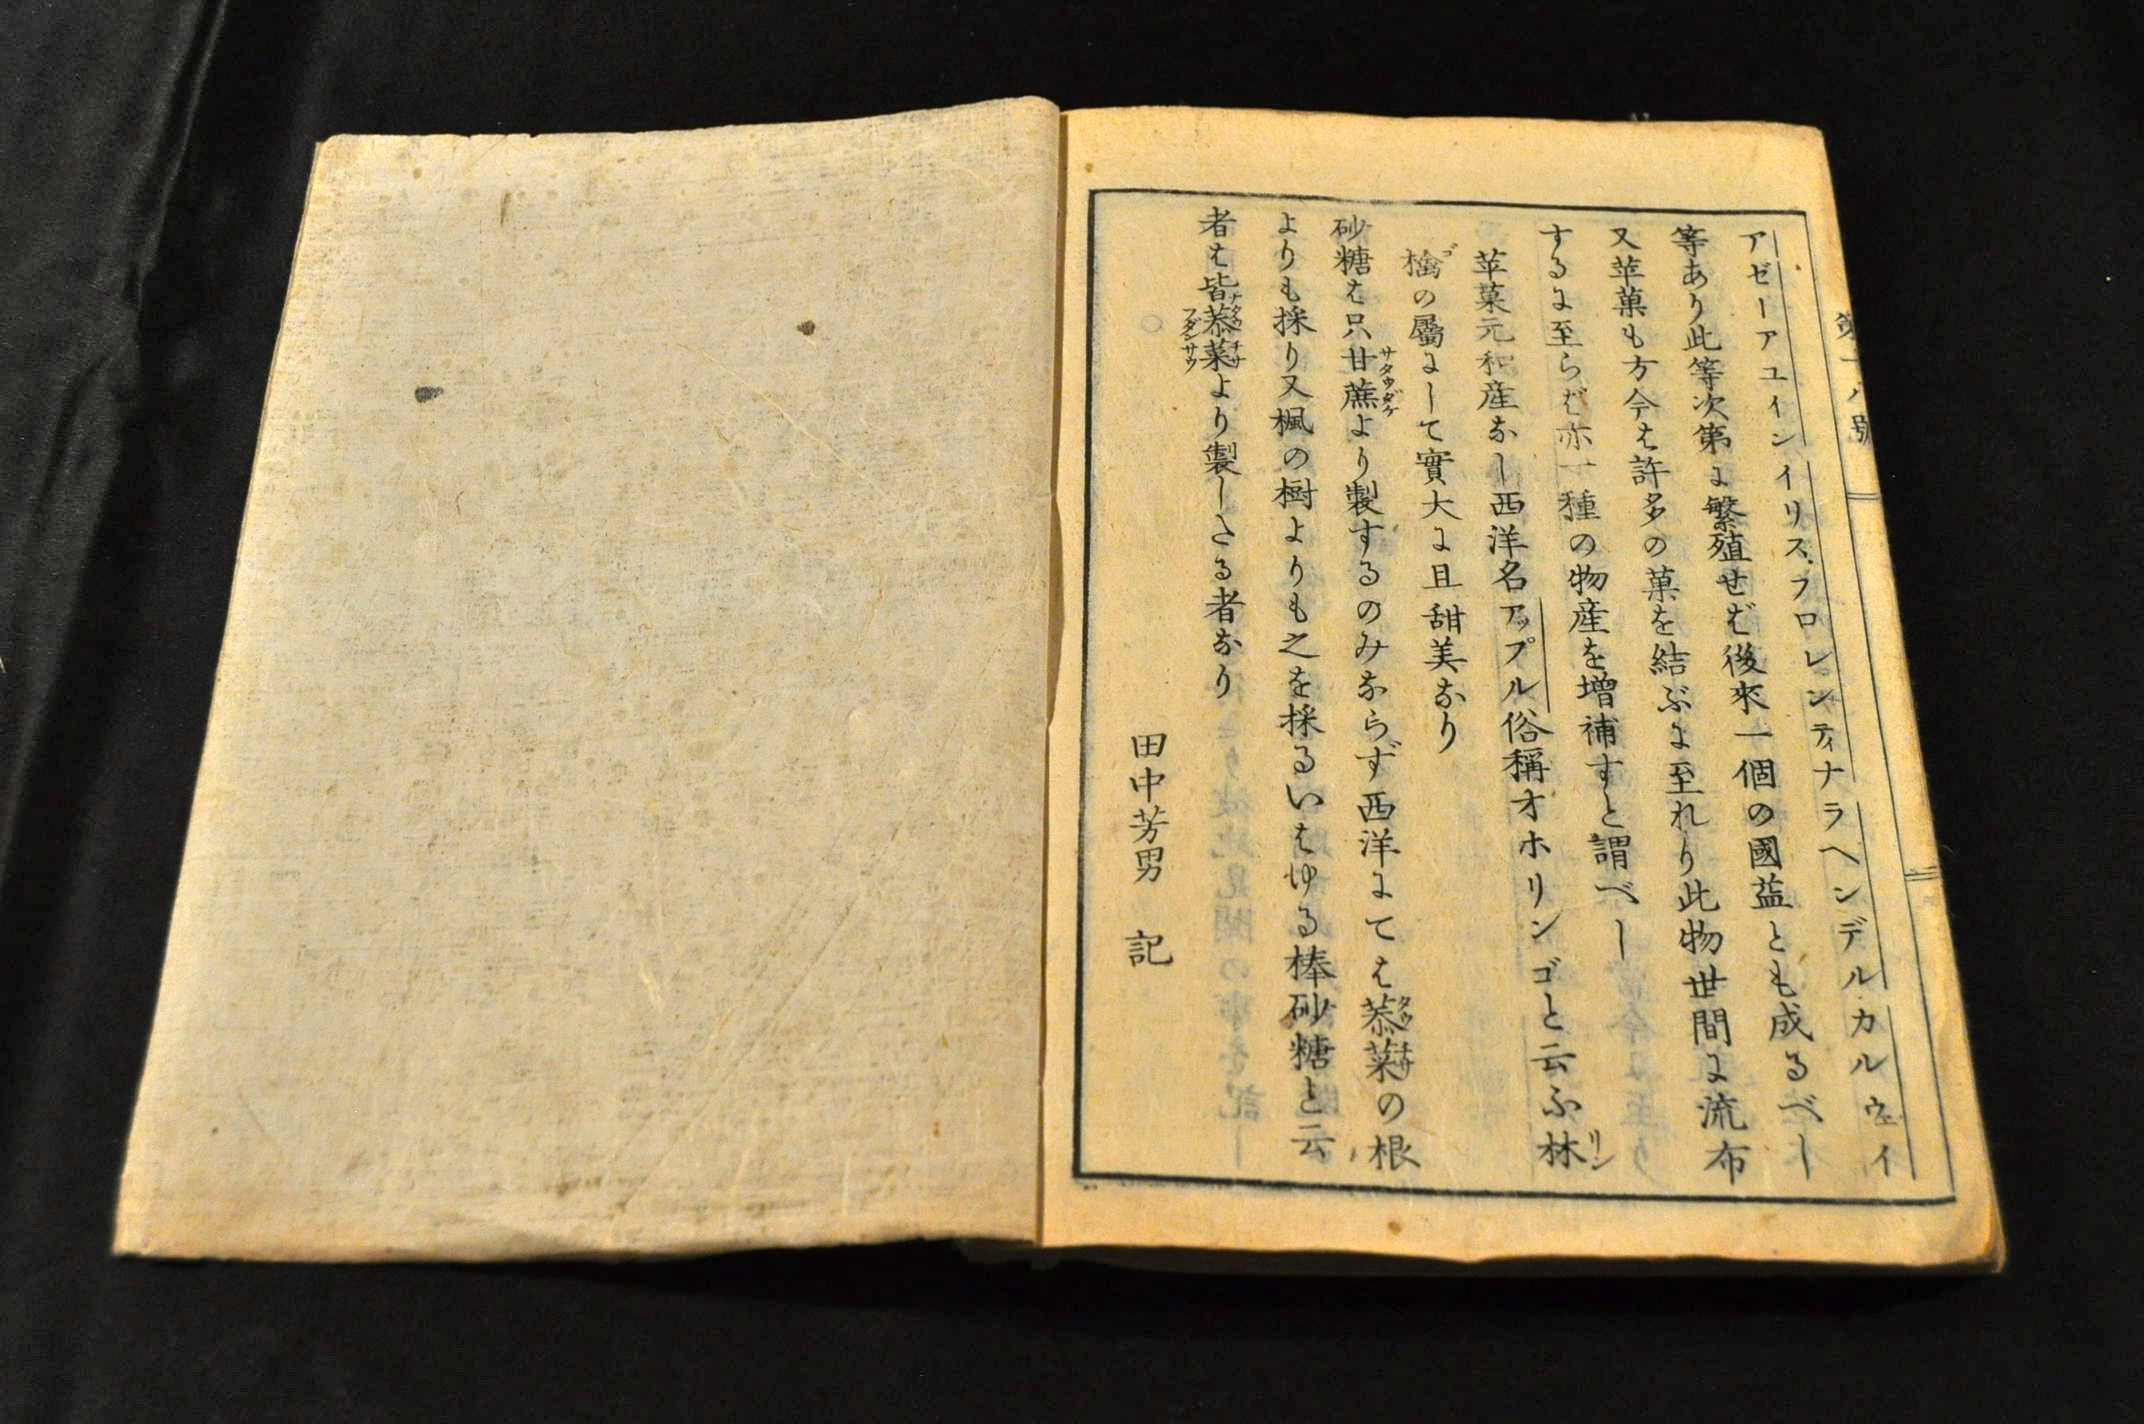 アゼーアユインイリス、フロレンティナラヘンデルカルウェイ
等あり此等次第に繁殖せば後来一個の國益とも成るべし
又苹菓も方今は許多の菓を結ぶに至れり此物世間に流布
するに至らば亦一種の物産を増補すと謂べし
苹菓元和産なし西洋名アップル俗稱オホリンゴと云ふ林リン
檎ゴの屬にして實大に且甜美なり
砂糖は只甘蔗サタウダケより製するのみならず西洋にては菾菜タウヂサの根
よりも採り又楓の樹よりも之を採るいはゆる棒砂糖と云
者は皆菾菜タウヂサフダンサウより製したる者なり
田中芳男 記